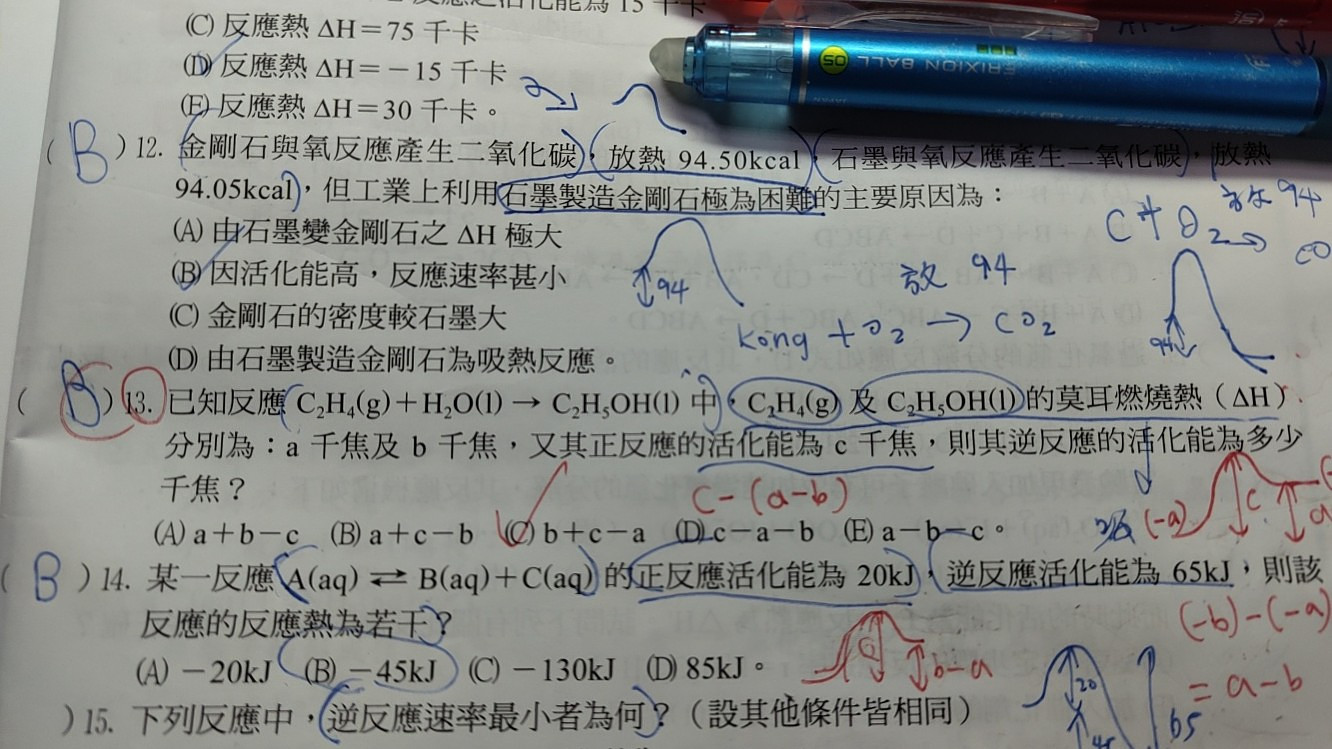 反應之活化能為 15 千卡
(C) 反應熱 ΔH＝75 千卡
(D) 反應熱 ΔH＝－15 千卡
(E) 反應熱 ΔH＝30 千卡。
FRIXION BALL 05
( B ) 12. 金剛石與氧反應產生二氧化碳，放熱 94.50kcal，石墨與氧反應產生二氧化碳，放熱
94.05kcal，但工業上利用石墨製造金剛石極為困難的主要原因為：
放 94
(A) 由石墨變金剛石之 ΔH 極大
C + O2 → CO
(B) 因活化能高，反應速率甚小
94
放 94
(C) 金剛石的密度較石墨大
Kong + O2 → CO2
94
(D) 由石墨製造金剛石為吸熱反應。
( B ) 13. 已知反應 C₂H₄(g)＋H₂O(l) → C₂H₅OH(l) 中，C₂H₄(g) 及 C₂H₅OH(l) 的莫耳燃燒熱（ΔH）
分別為：a 千焦及 b 千焦，又其正反應的活化能為 c 千焦，則其逆反應的活化能為多少
千焦？
c - (a-b)
(A) a＋b－c (B) a＋c－b (C) b＋c－a (D) c－a－b (E) a－b－c。
(-a)
c
a
( B ) 14. 某一反應 A(aq) ⇌ B(aq)＋C(aq) 的正反應活化能為 20kJ，逆反應活化能為 65kJ，則該
反應的反應熱為若干？
(-b)-(-a)
(A) －20kJ (B) －45kJ (C) －130kJ (D) 85kJ。
b-a
= a-b
20
65
) 15. 下列反應中，逆反應速率最小者為何？（設其他條件皆相同）